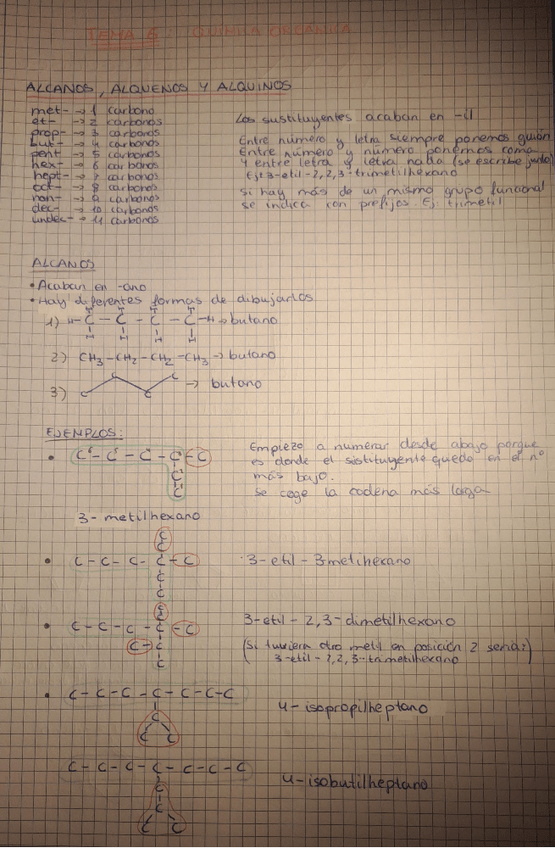 TEMA 5: QUÍMICA ORGÁNICA
ALCANOS, ALQUENOS Y ALQUINOS
met- → 1 carbono
et- → 2 carbonos
prop- → 3 carbonos
but- → 4 carbonos
pent- → 5 carbonos
hex- → 6 carbonos
hept- → 7 carbonos
oct- → 8 carbonos
non- → 9 carbonos
dec- → 10 carbonos
undec- → 11 carbonos
Los sustituyentes acaban en -il
Entre número y letra siempre ponemos guión
Entre número y número ponemos coma
Y entre letra y letra nada (se escribe junto)
Ej: 3-etil-2,2,3-trimetilhexano
Si hay más de un mismo grupo funcional
se indica con prefijos. Ej: trimetil
ALCANOS
• Acaban en -ano
• Hay diferentes formas de dibujarlos
H H H H
1) H-C-C-C-C-H → butano
H H H H
2) CH3-CH2-CH2-CH3 → butano
3) C C C C → butano
EJEMPLOS:
• C-C-C-C-C
C
C
3-metilhexano
Empiezo a numerar desde abajo porque
es donde el sustituyente queda en el nº
más bajo.
Se coge la cadena más larga
C
C
• C-C-C-C-C
C
C
3-etil-3-metihexano
C
C
• C-C-C-C-C
C-C
C
3-etil-2,3-dimetilhexano
(Si tuviera otro metil en posición 2 sería:
3-etil-2,2,3-trimetilhexano
• C-C-C-C-C-C-C
C
C C
4-isopropilheptano
C-C-C-C-C-C-C
C
C
C C
4-isobutilheptano